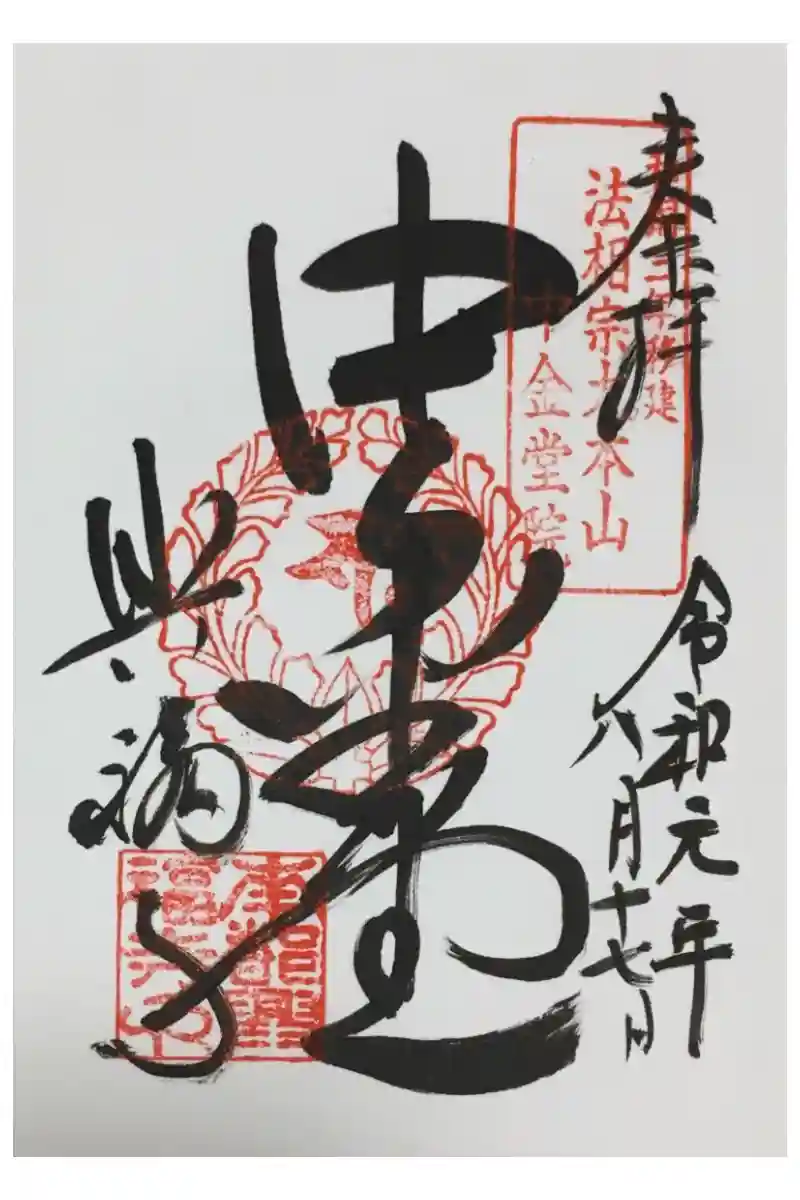 奉拝
和銅三年移建
法相宗大本山
中金堂院
令和元年
八月十七日
中金堂
興福寺